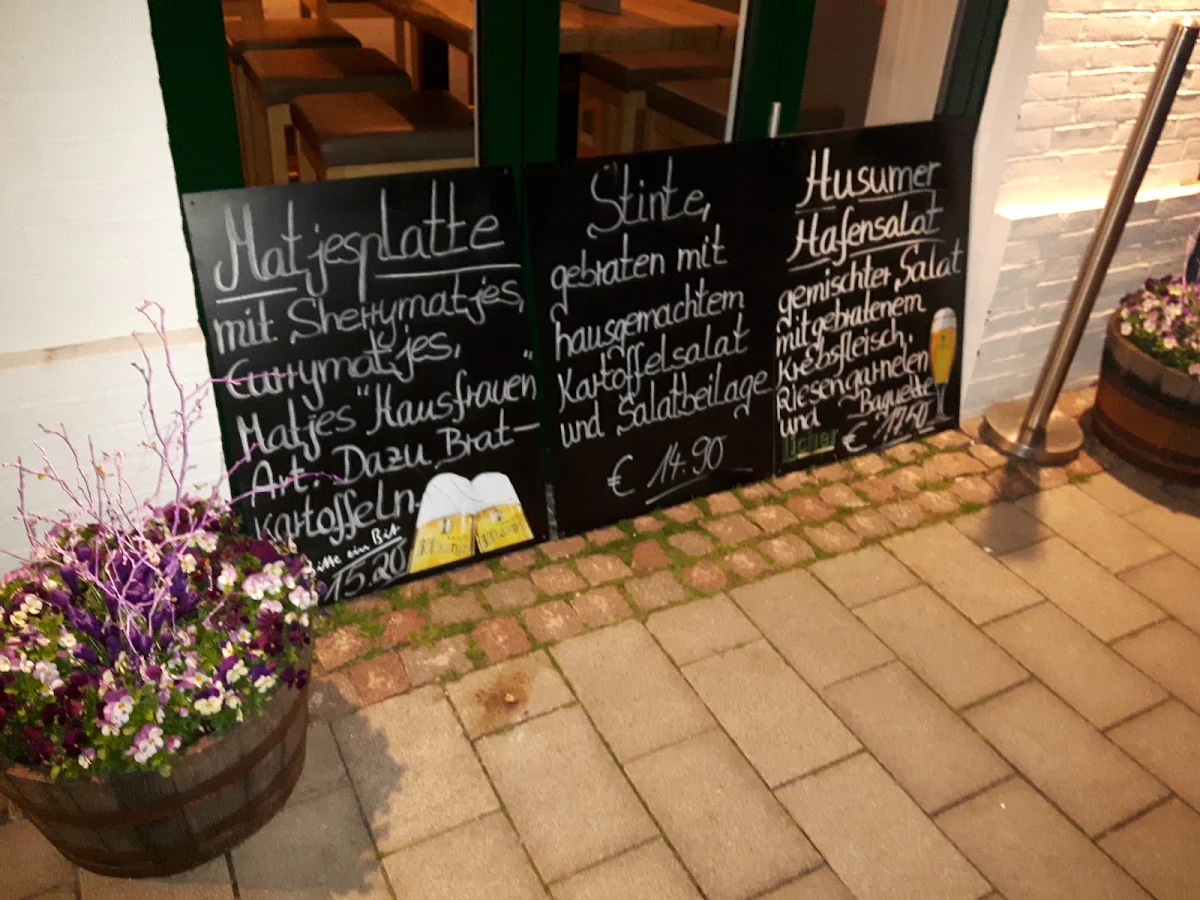 Matjesplatte
mit Sherrymatjes,
Currymatjes,
Matjes "Hausfrauen"
Art. Dazu Brat-
kartoffeln.
Bitte ein Bit
15.20
Stinte,
gebraten mit
hausgemachtem
Kartoffelsalat
und Salatbeilage
€ 14.90
Husumer
Hafensalat
gemischter Salat
mit gebratenem
Krebsfleisch,
Riesengarnelen
und Baguette
Licher
€ 17.60